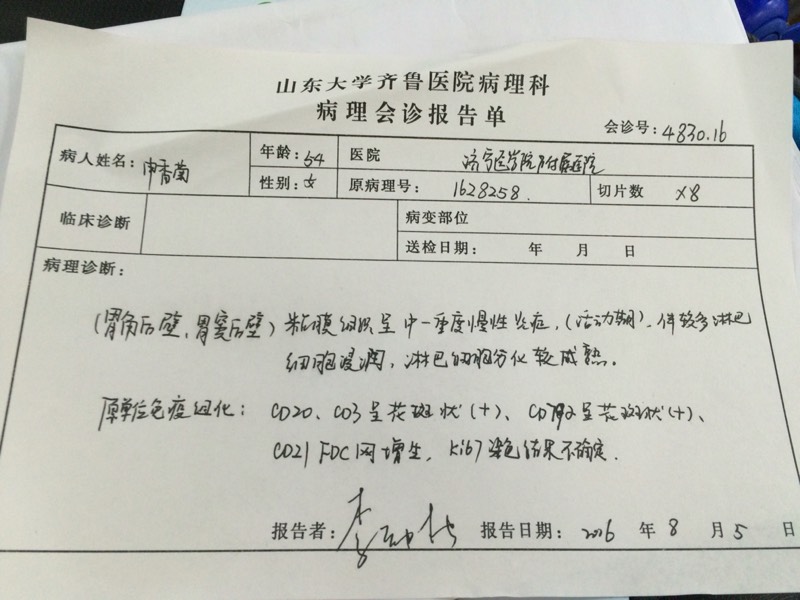 山东大学齐鲁医院病理科
病理会诊报告单
会诊号：4830.16
病人姓名：申香菊 年龄：54 医院 济宁医学院附属医院
性别：女 原病理号：1628258. 切片数 X8
临床诊断 病变部位
送检日期： 年 月 日
病理诊断：
（胃角后壁，胃窦后壁）粘膜组织呈中-重度慢性炎症，（活动期）. 伴较多淋巴
细胞浸润，淋巴细胞分化较成熟。
原单位免疫组化： CD20、CD3呈花斑状(+)、 呈花斑状(+)、
CD21 FDC网增生，Ki67染色结果不确定.
报告者： 报告日期：2016 年 8 月 5 日